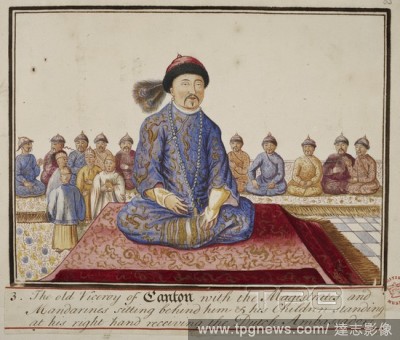 3. The old Viceroy of Canton with the Magistrates and
Mandarines sitting behind him & his Children standing
at his right hand receiving the Dutch
www.tpgnews.com / 達志影像